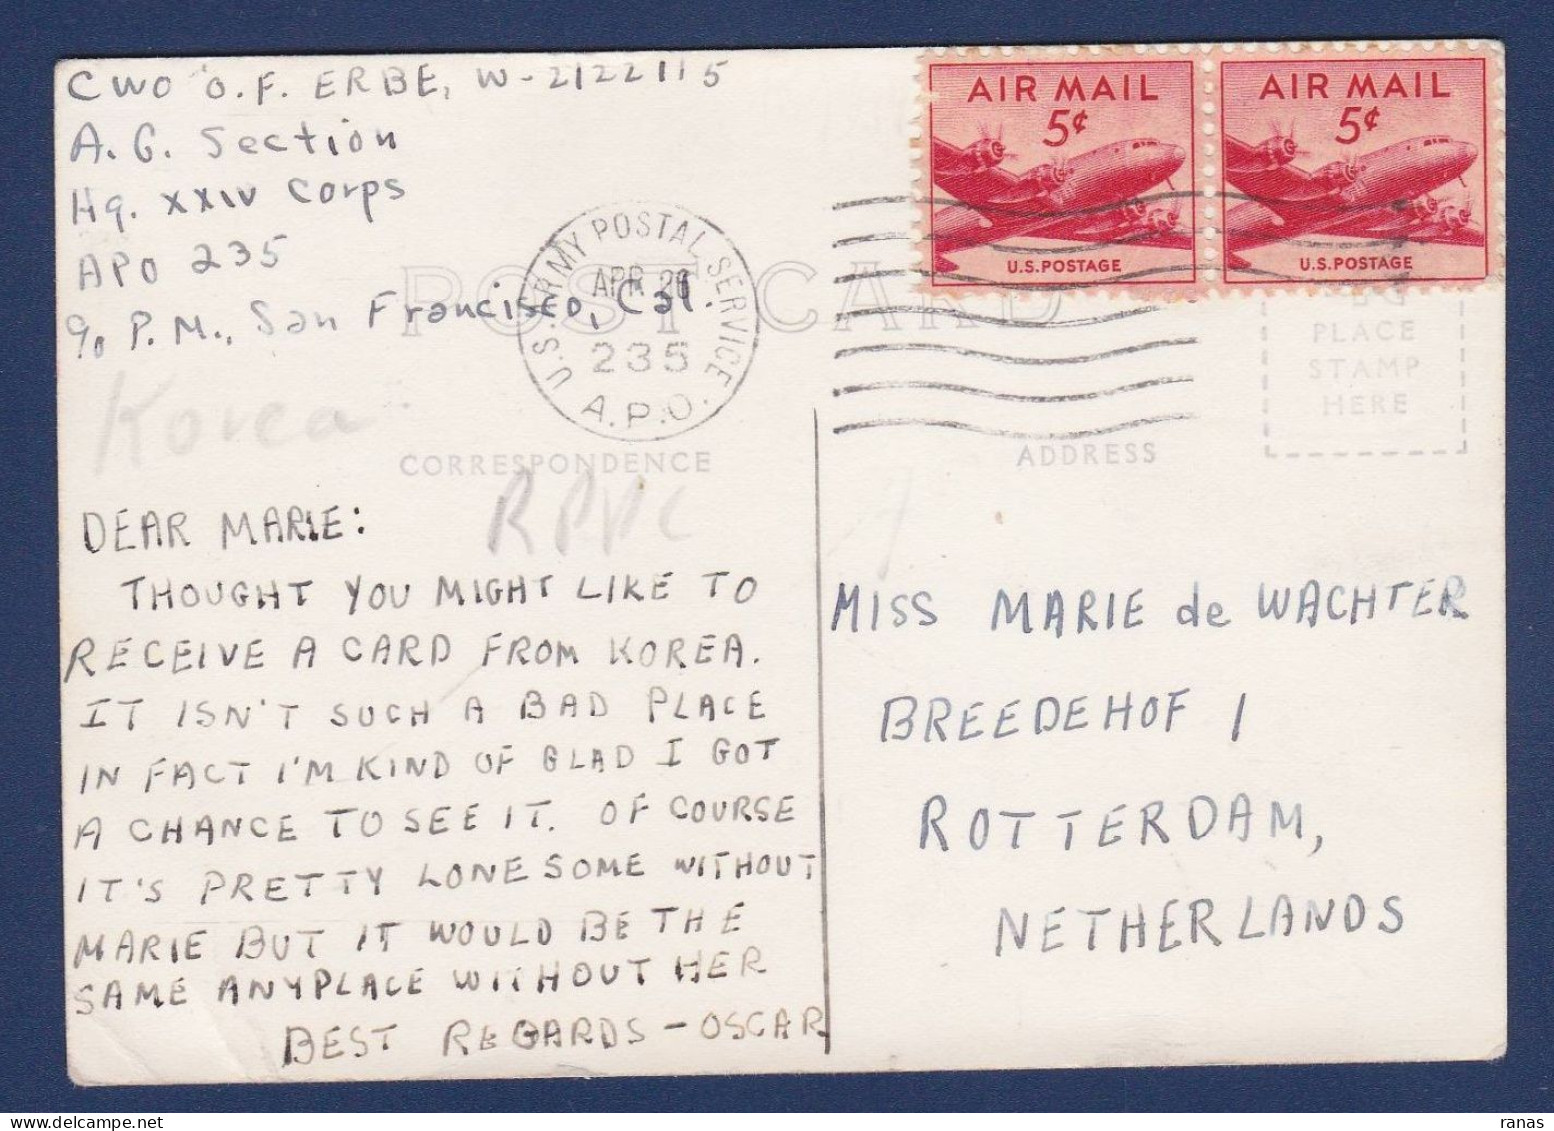 CWO O.F. ERBE, W-2122115
A.G. Section
Hq. XXIV Corps
APO 235
c/o P.M., San Francisco, Cal.
Korea
AIR MAIL
5¢
U.S. POSTAGE
AIR MAIL
5¢
U.S. POSTAGE
U.S. ARMY POSTAL SERVICE
APR 26
235
A.P.O.
POST CARD
PLACE
STAMP
HERE
CORRESPONDENCE
ADDRESS
RPPC
DEAR MARIE:
THOUGHT YOU MIGHT LIKE TO
RECEIVE A CARD FROM KOREA.
IT ISN'T SUCH A BAD PLACE
IN FACT I'M KIND OF GLAD I GOT
A CHANCE TO SEE IT. OF COURSE
IT'S PRETTY LONESOME WITHOUT
MARIE BUT IT WOULD BE THE
SAME ANYPLACE WITHOUT HER
BEST REGARDS - OSCAR
MISS MARIE de WACHTER
BREEDEHOF 1
ROTTERDAM,
NETHERLANDS
www.delcampe.net
ranas